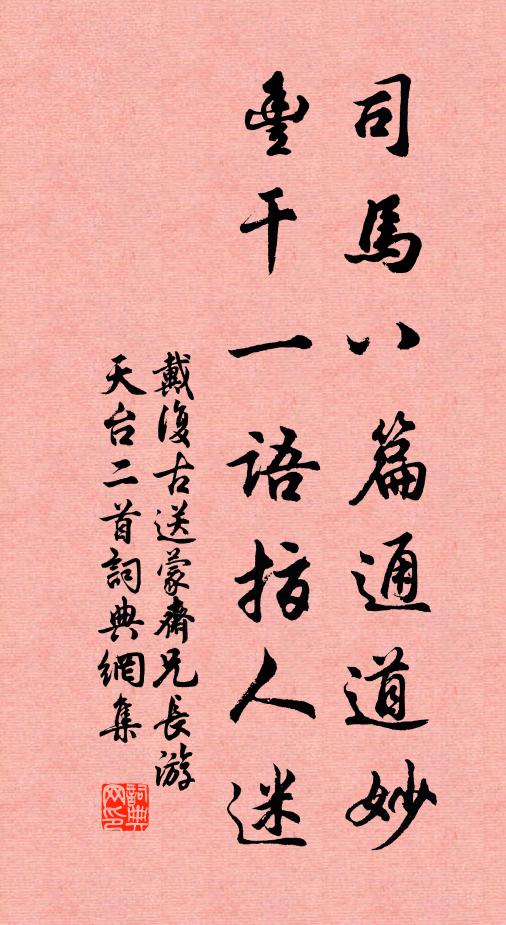 司馬八篇通道妙
豊干一語指人迷
戴復古送蒙齋兄長游
天台二首詞典網集
詞典网印